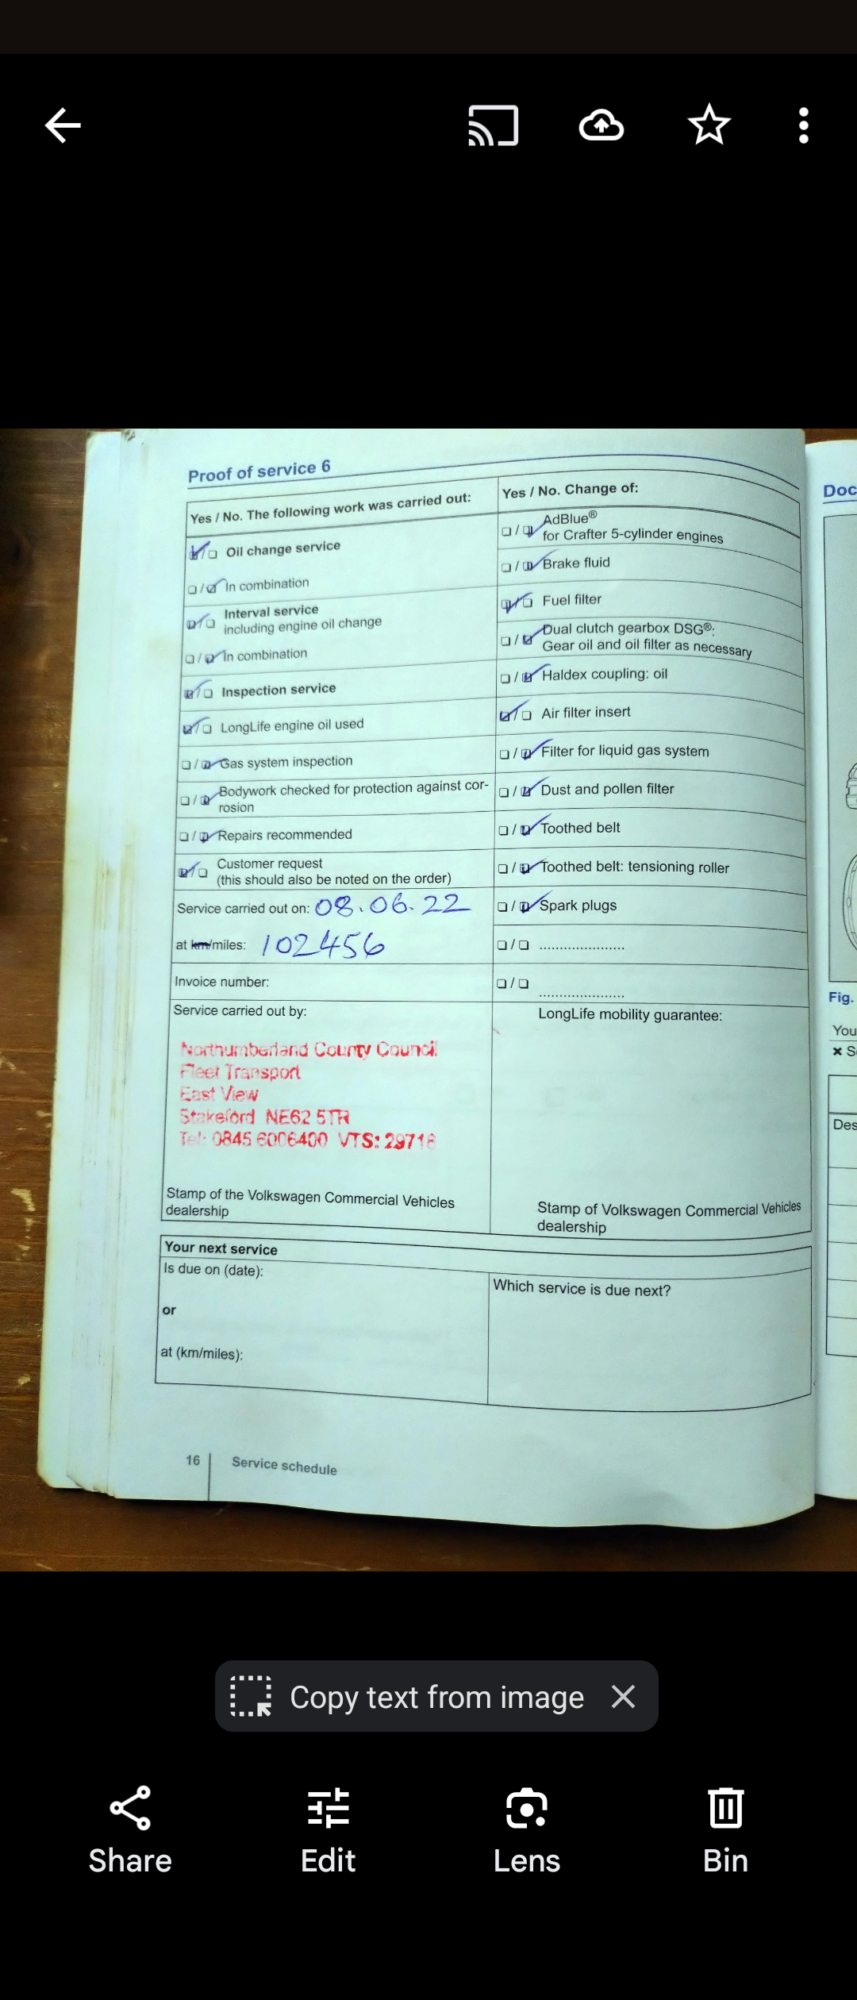 Proof of service 6
Yes / No. The following work was carried out:
Oil change service
In combination
Interval service
including engine oil change
In combination
Inspection service
LongLife engine oil used
Gas system inspection
Bodywork checked for protection against cor-
rosion
Repairs recommended
Customer request
(this should also be noted on the order)
Service carried out on: 08.06.22
at km/miles: 102456
Invoice number:
Service carried out by:
Northumberland County Council
Fleet Transport
East View
Stakeford NE62 5TR
Tel: 0845 6006400 VTS: 29718
Stamp of the Volkswagen Commercial Vehicles
dealership
Yes / No. Change of:
AdBlue®
for Crafter 5-cylinder engines
Brake fluid
Fuel filter
Dual clutch gearbox DSG®:
Gear oil and oil filter as necessary
Haldex coupling: oil
Air filter insert
Filter for liquid gas system
Dust and pollen filter
Toothed belt
Toothed belt: tensioning roller
Spark plugs
LongLife mobility guarantee:
Stamp of Volkswagen Commercial Vehicles
dealership
Your next service
Is due on (date):
or
at (km/miles):
Which service is due next?
16 Service schedule
Doc
Fig.
You
× S
Des
Copy text from image
Share
Edit
Lens
Bin